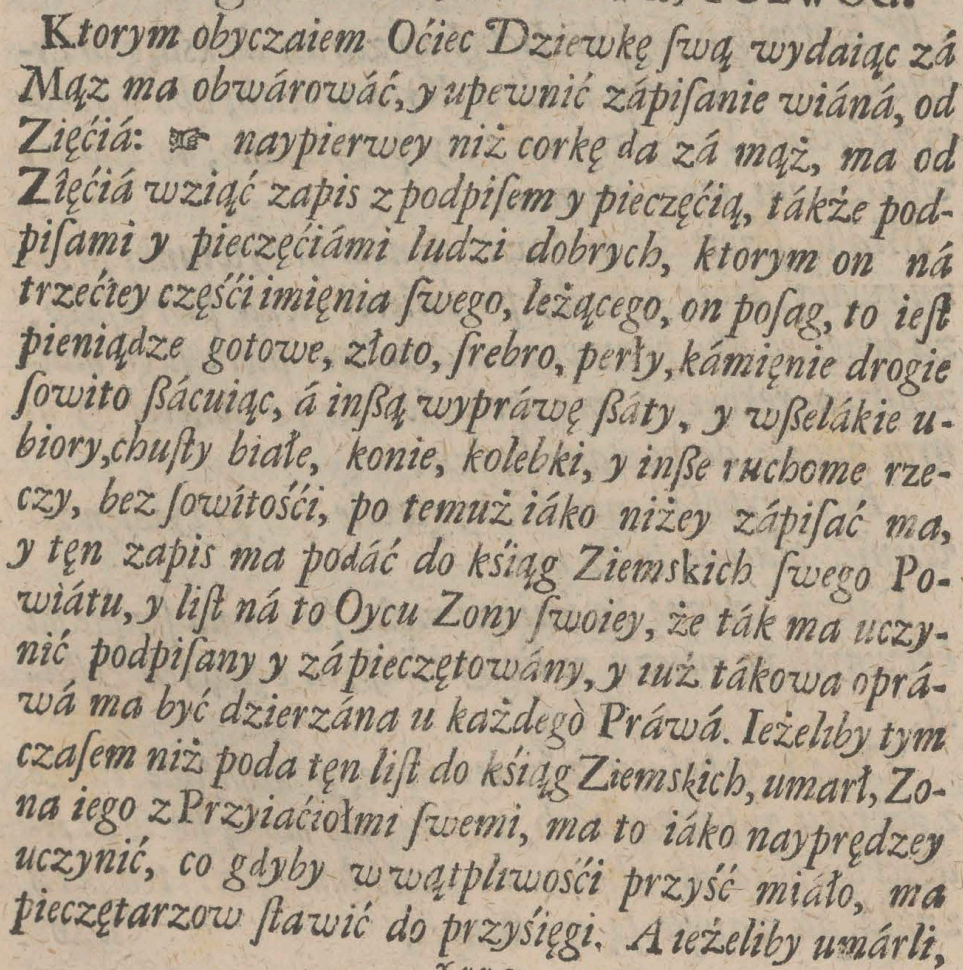 Ktorym obyczaiem Oćiec Dziewkę ſwą wydaiąc zá
Mąz ma obwárowáć, y upewnić zápiſanie wiáná, od
Zięćiá: ☞ naypierwey niż corkę da zá mąż, ma od
Zięćiá wziąć zapis z podpiſem y pieczęćią, tákże pod-
piſami y pieczęćiámi ludzi dobrych, ktorym on ná
trzećiey częśći imięnia ſwego, leżącego, on poſag, to ieſt
pieniądze gotowe, złoto, ſrebro, perły, kámięnie drogie
ſowito ßácuiąc, á inßą wypráwę ßáty, y wßelákie u-
biory, chuſty białe, konie, kolebki, y inße ruchome rze-
czy, bez ſowitośći, po temuż iáko niżey zápiſać ma,
y tęn zapis ma podáć do kśiąg Ziemskich ſwego Po-
wiátu, y liſt ná to Oycu Zony ſwoiey, że ták ma uczy-
nić podpiſany y zápieczętowány, y iuż tákowa oprá-
wá ma być dzierzána u każdegò Práwá. Ieżeliby tym
czaſem niż poda tęn liſt do kśiąg Ziemskich, umarł, Zo-
na iego z Przyiaćiołmi ſwemi, ma to iáko nayprędzey
uczynić, co gdyby w wątpliwośći przyść miáło, ma
pieczętarzow ſtawić do przyśięgi. A ieżeliby umárli,